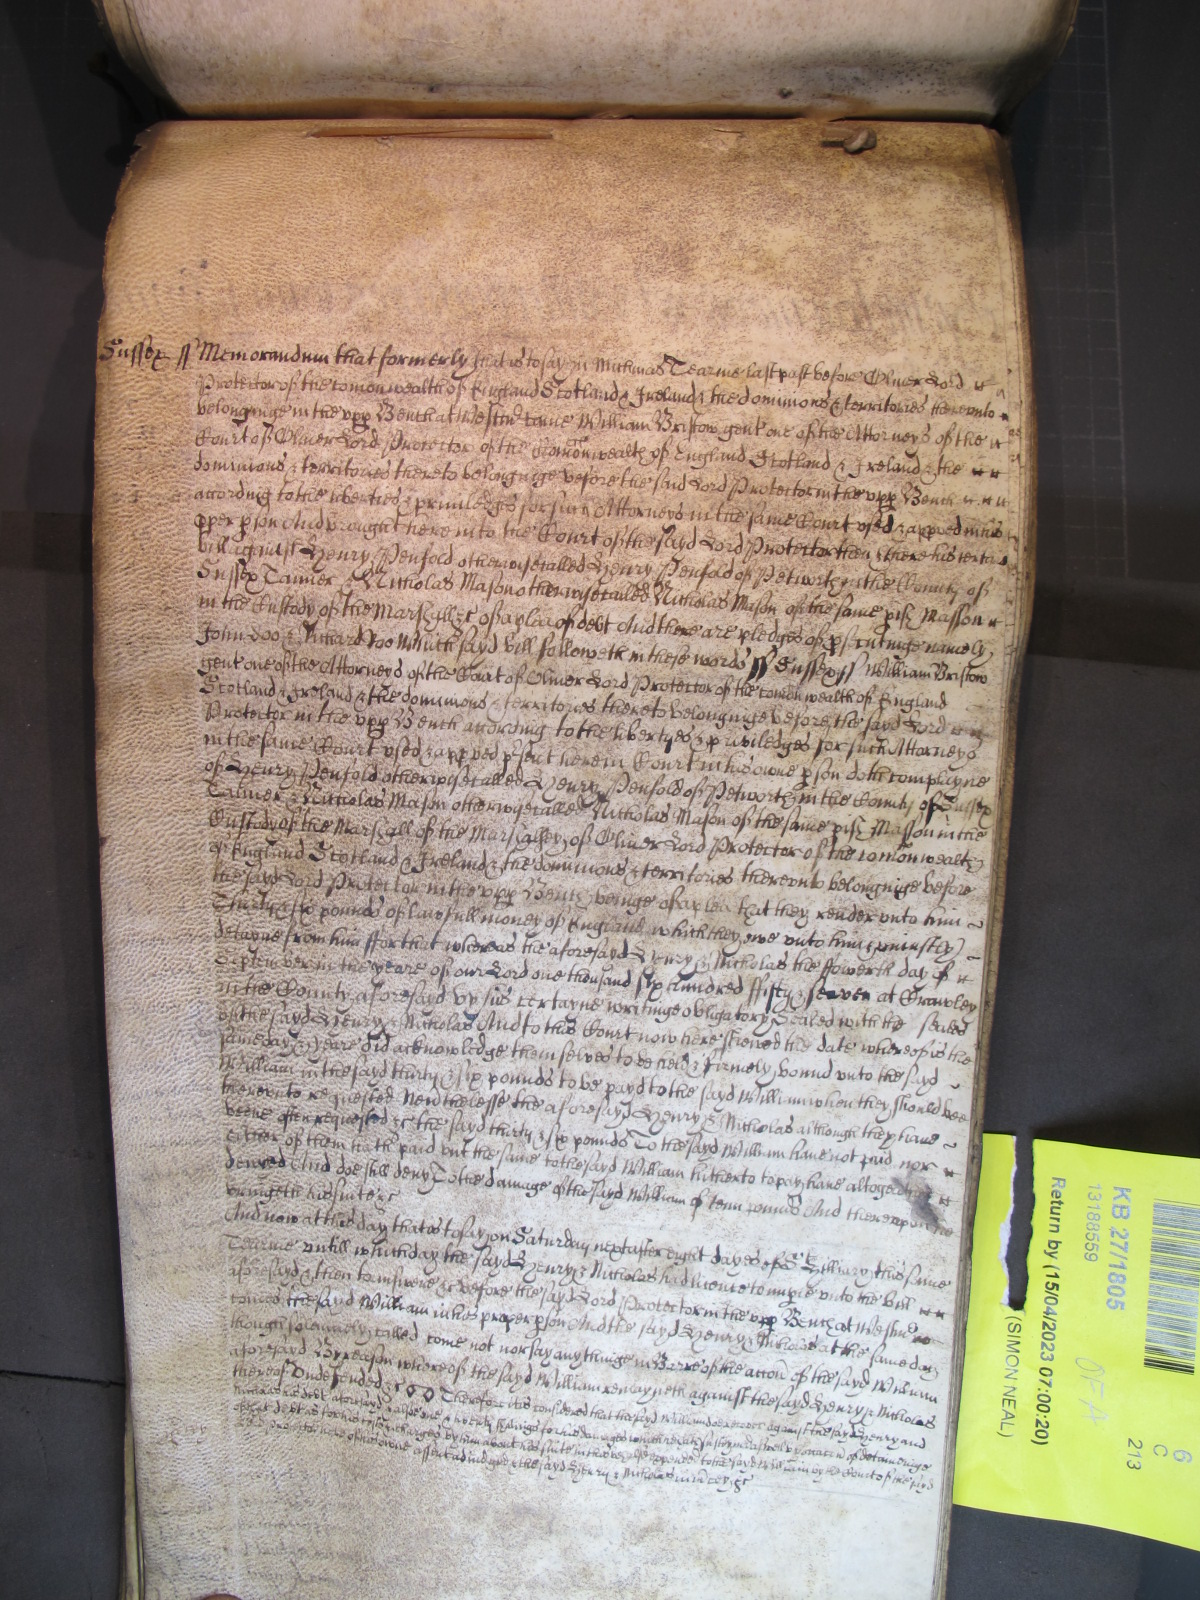 Sussex ss Memorandum that formerly that is to say in Michmas Tearme last past before Oliver Lord
Protector of the comonwealth of England Scotland & Ireland & the dominions & territories therevnto
belonginge in the vpp Bench at Westmr came William Bristow gent one of the Attorneys of the
Court of Oliver Lord Protector of the Comonwealth of England Scotland & Ireland & the
dominions & territories thereto belonginge before the said Lord Protector in the vpp Bench
according to the liberties & priviledges for such Attorneys in the same Court vsed & appved in his
pper pson And brought here into the Court of the sayd Lord Protector then & there his certaine
bill against Henry Penfold otherwise called Henry Penfold of Petworth in the County of
Sussex Tanner & Nicholas Mason otherwise called Nicholas Mason of the same pish Masson
in the Custody of the Marshall &c of a plea of debt And there are pledges of psecutinge namely
John Doo & Richard Roo Which sayd bill followeth in these words ss Sussex ss William Bristow
gent one of the Attorneys of the Court of Oliver Lord Protector of the comonwealth of England
Scotland & Ireland & the dominions & territories thereto belonginge before the sayd Lord
Protector in the vpp Bench according to the libertyes & priviledges for such Attorneys
in the same Court vsed & appved psent here in Court in his owne pson doth complayne
of Henry Penfold otherwise called Henry Penfold of Petworth in the County of Sussex
Tanner & Nicholas Mason otherwise called Nicholas Mason of the same pish Masson in the
Custody of the Marshall of the Marshalsey of Oliver Lord Protector of the comonwealth
of England Scotland & Ireland & the dominions & territories therevnto belonginge before
the sayd Lord Protector in the vpp Bench beinge of a plea that they render vnto him
Thirty & six pounds of lawfull money of England which they owe vnto him & vniustly
detayne from him ffor that whereas the aforesayd Henry & Nicholas the ffowerth day of
September in the yeare of our Lord one thousand six hundred ffifty & seaven at Crawley
in the County aforesayd by his certayne writinge obligatory Sealed with the seales
of the sayd Henry & Nicholas And to this Court now here shewed the date whereof is the
same day & yeare did acknowledge themselves to be held & firmely bound vnto the sayd
William in the sayd thirty & six pounds to be payd to the sayd William when they should bee
therevnto requested Neverthelesse the aforesayd Henry & Nicholas although they have
beene often requested &c the sayd thirty & six pounds To the sayd William have not paid nor
either of them hath paid but the same to the sayd William hitherto to pay have altogeather
denyed And doe still deny To the damage of the sayd William of tenn pounds And therevpon
bringeth his suite &c
And now at this day that is to say on Saturday next after eight dayes of St Hillary this same
Tearme vntill which day the sayd Henry & Nicholas had licence to imparle vnto the bill
aforesayd & then to answere &c before the sayd Lord Protector in the vpp Bench at Westmr
comes the sayd William in his proper pson And the sayd Henry & Nicholas at the same day
though solemnly called come not nor say any thinge in Barre of the accon of the sayd William
aforesayd By reason whereof the sayd William remayneth against the sayd Henry & Nicholas
thereof vndefended &c Therefore it is considered that the sayd William doe recover against the sayd Henry and
Nicholas his debt aforesayd & alsoe for his damages which he hath susteyned aswell by occacon of detayninge
of that debt as for his charges by him about his suite in this behalfe to the sayd William by the Court of the sayd
Lord protector here of his owne assent adiudged & the sayd Henry & Nicholas in mcy &c
KB 27/1805
13188559
Return by (15/04/2023 07:00:20)
(SIMON NEAL)
6
C
213